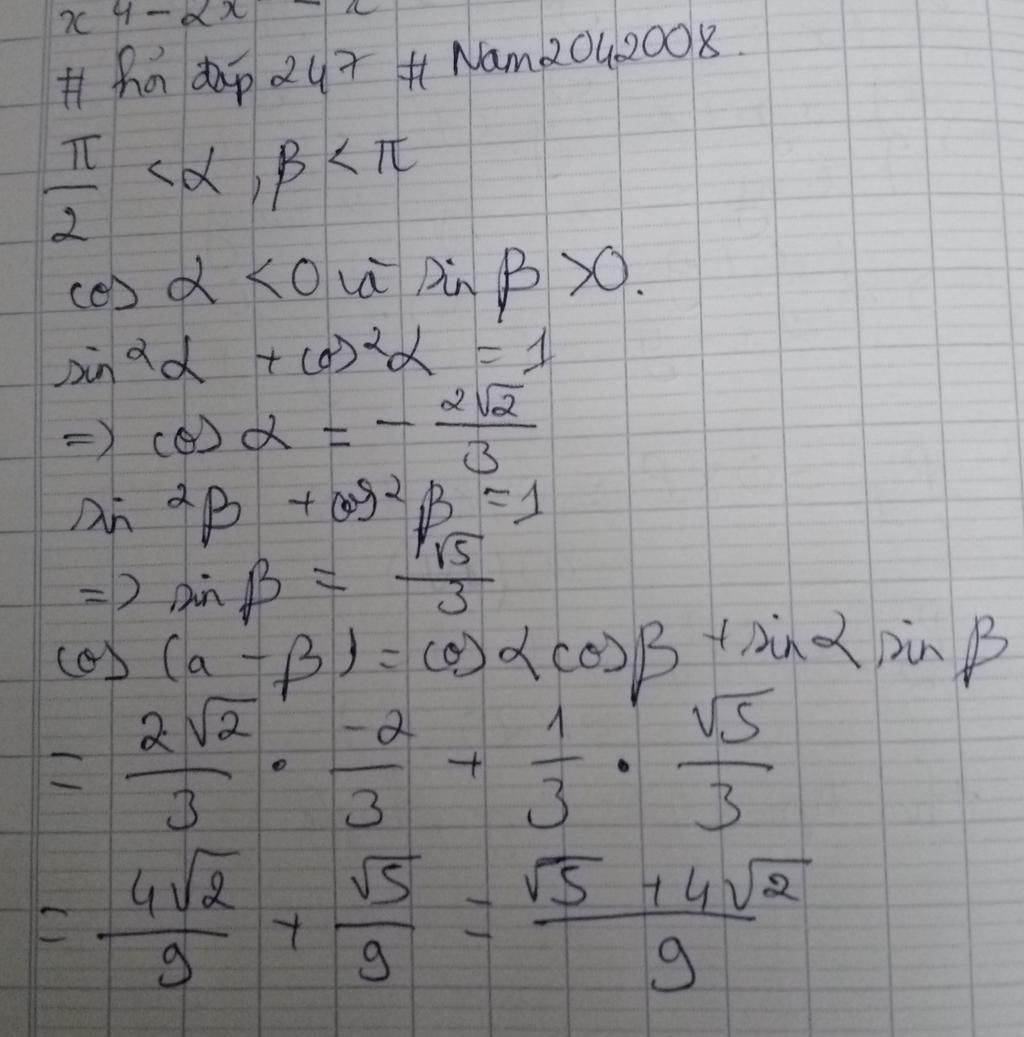 x 4 - 2x
# hỏi đáp 247 # Nam2042008.
π/2 < α, β < π
cos α < 0 và sin β > 0.
sin²α + cos²α = 1
=> cos α = - 2√2/3
sin²β + cos²β = 1
=> sin β = √5/3
cos (a - β) = cos α cos β + sin α sin β
= 2√2/3 . -2/3 + 1/3 . √5/3
= 4√2/9 + √5/9 = √5 + 4√2/9